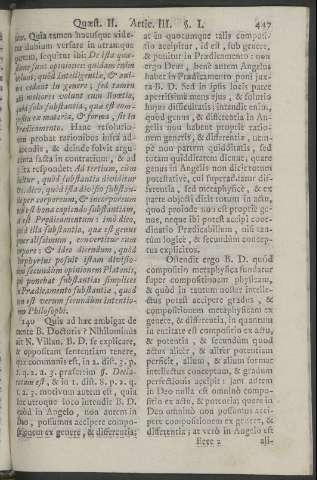 Quæst. II. Artic. III. §. I. 447
tior. Quia tamen hucusque vide-
tur dubium versare in utramque
partem, sequitur ibi: De ista quæ-
stione sunt opiniones quidam enim
volunt, quòd intelligentiæ, & ani-
mæ cadant in genere; sed tamen
alij meliores volunt cum Boetio,
quòd sola substantia, quæ est com-
posita ex materia, & forma, sit in
Prædicamento. Hanc resolutio-
nem probat rationibus infra ad-
ducendis, & deinde solvit argu-
menta facta in contrarium, & ad
ista respondet: Ad tertium, cùm
dicitur, quòd substantia dividitur
&c. dico, quòd ista divisio substan-
tiæ per corpoream, & incorpoream
non est bona capiendo substantiam,
ut est Prædicamentum: imò dico,
quòd illa substantia, quæ est genus
generalissimum, convertitur cum
corpore: & ideo dicendum, quòd
Porphyrius posuit istam divisio-
nem secundùm opinionem Platonis,
qui ponebat substantias simplices
in Prædicamento substantiæ, quod
non est verum secundùm intentio-
nem Philosophi.
140 Quis ad hæc ambigat de
mente B. Doctoris? Nihilominus
ait N. Villan. B. D. se explicare,
& oppositam sententiam tenere,
quæ communis est, in 2. dist. 3. p.
1. q. 2. a. 3. præsertim §. Decla-
ratum est, & in 1. dist. 8. p. 2. q.
1. a. 3. motivum autem est, quia
in utroque loco intendit B. D.
quòd in Angelo, non autem in
Deo, possumus accipere compo-
sitionem ex genere, & differentia:
at in quocumque talis composi-
tio accipitur, id est, sub genere,
& ponitur in Prædicamento: non
ergo Deus, benè autem Angelus
habet in Prædicamento poni jux-
ta B. D. Sed in ipsis locis patet
apertissimè mens ejus, & solutio
hujus difficultatis: intendit enim,
quòd genus, & differentia in An-
gelis non habent propriè ratio-
nem generis, & differentiæ, nem-
pè non partem quidditatis, sed
totam quidditatem dicunt, quare
genus in Angelis non dicit tenere
potestative, cui superaddatur dif-
ferentia, sed metaphysicè, & ex
parte objecti dicit totum in actu,
quod proinde non est propriè ge-
nus, neque ibi potest accipi coor-
dinatio Prædicabilium, nisi tan-
tùm logicè, & secundùm conceptus
explicitos.
Ostendit ergo B. D. quòd
compositio metaphysica fundatur
super compositionem physicam,
& quòd in tantum noster intelle-
ctus potest accipere gradus, &
compositionem metaphysicam ex
genere, & differentia, in quantum
in entitate est compositio ex actu,
& potentia, & secundùm quod
actus aliter, & aliter potentiam
perficit, alium, & alium format
intellectus conceptum, & gradum
perfectionis accipit: jam autem
in Deo nulla est omninò composi-
tio ex actu, & potentia; quare in
Deo omninò non possumus acci-
pere compositionem ex genere, &
differentia; at verò in Angelo est
ali-